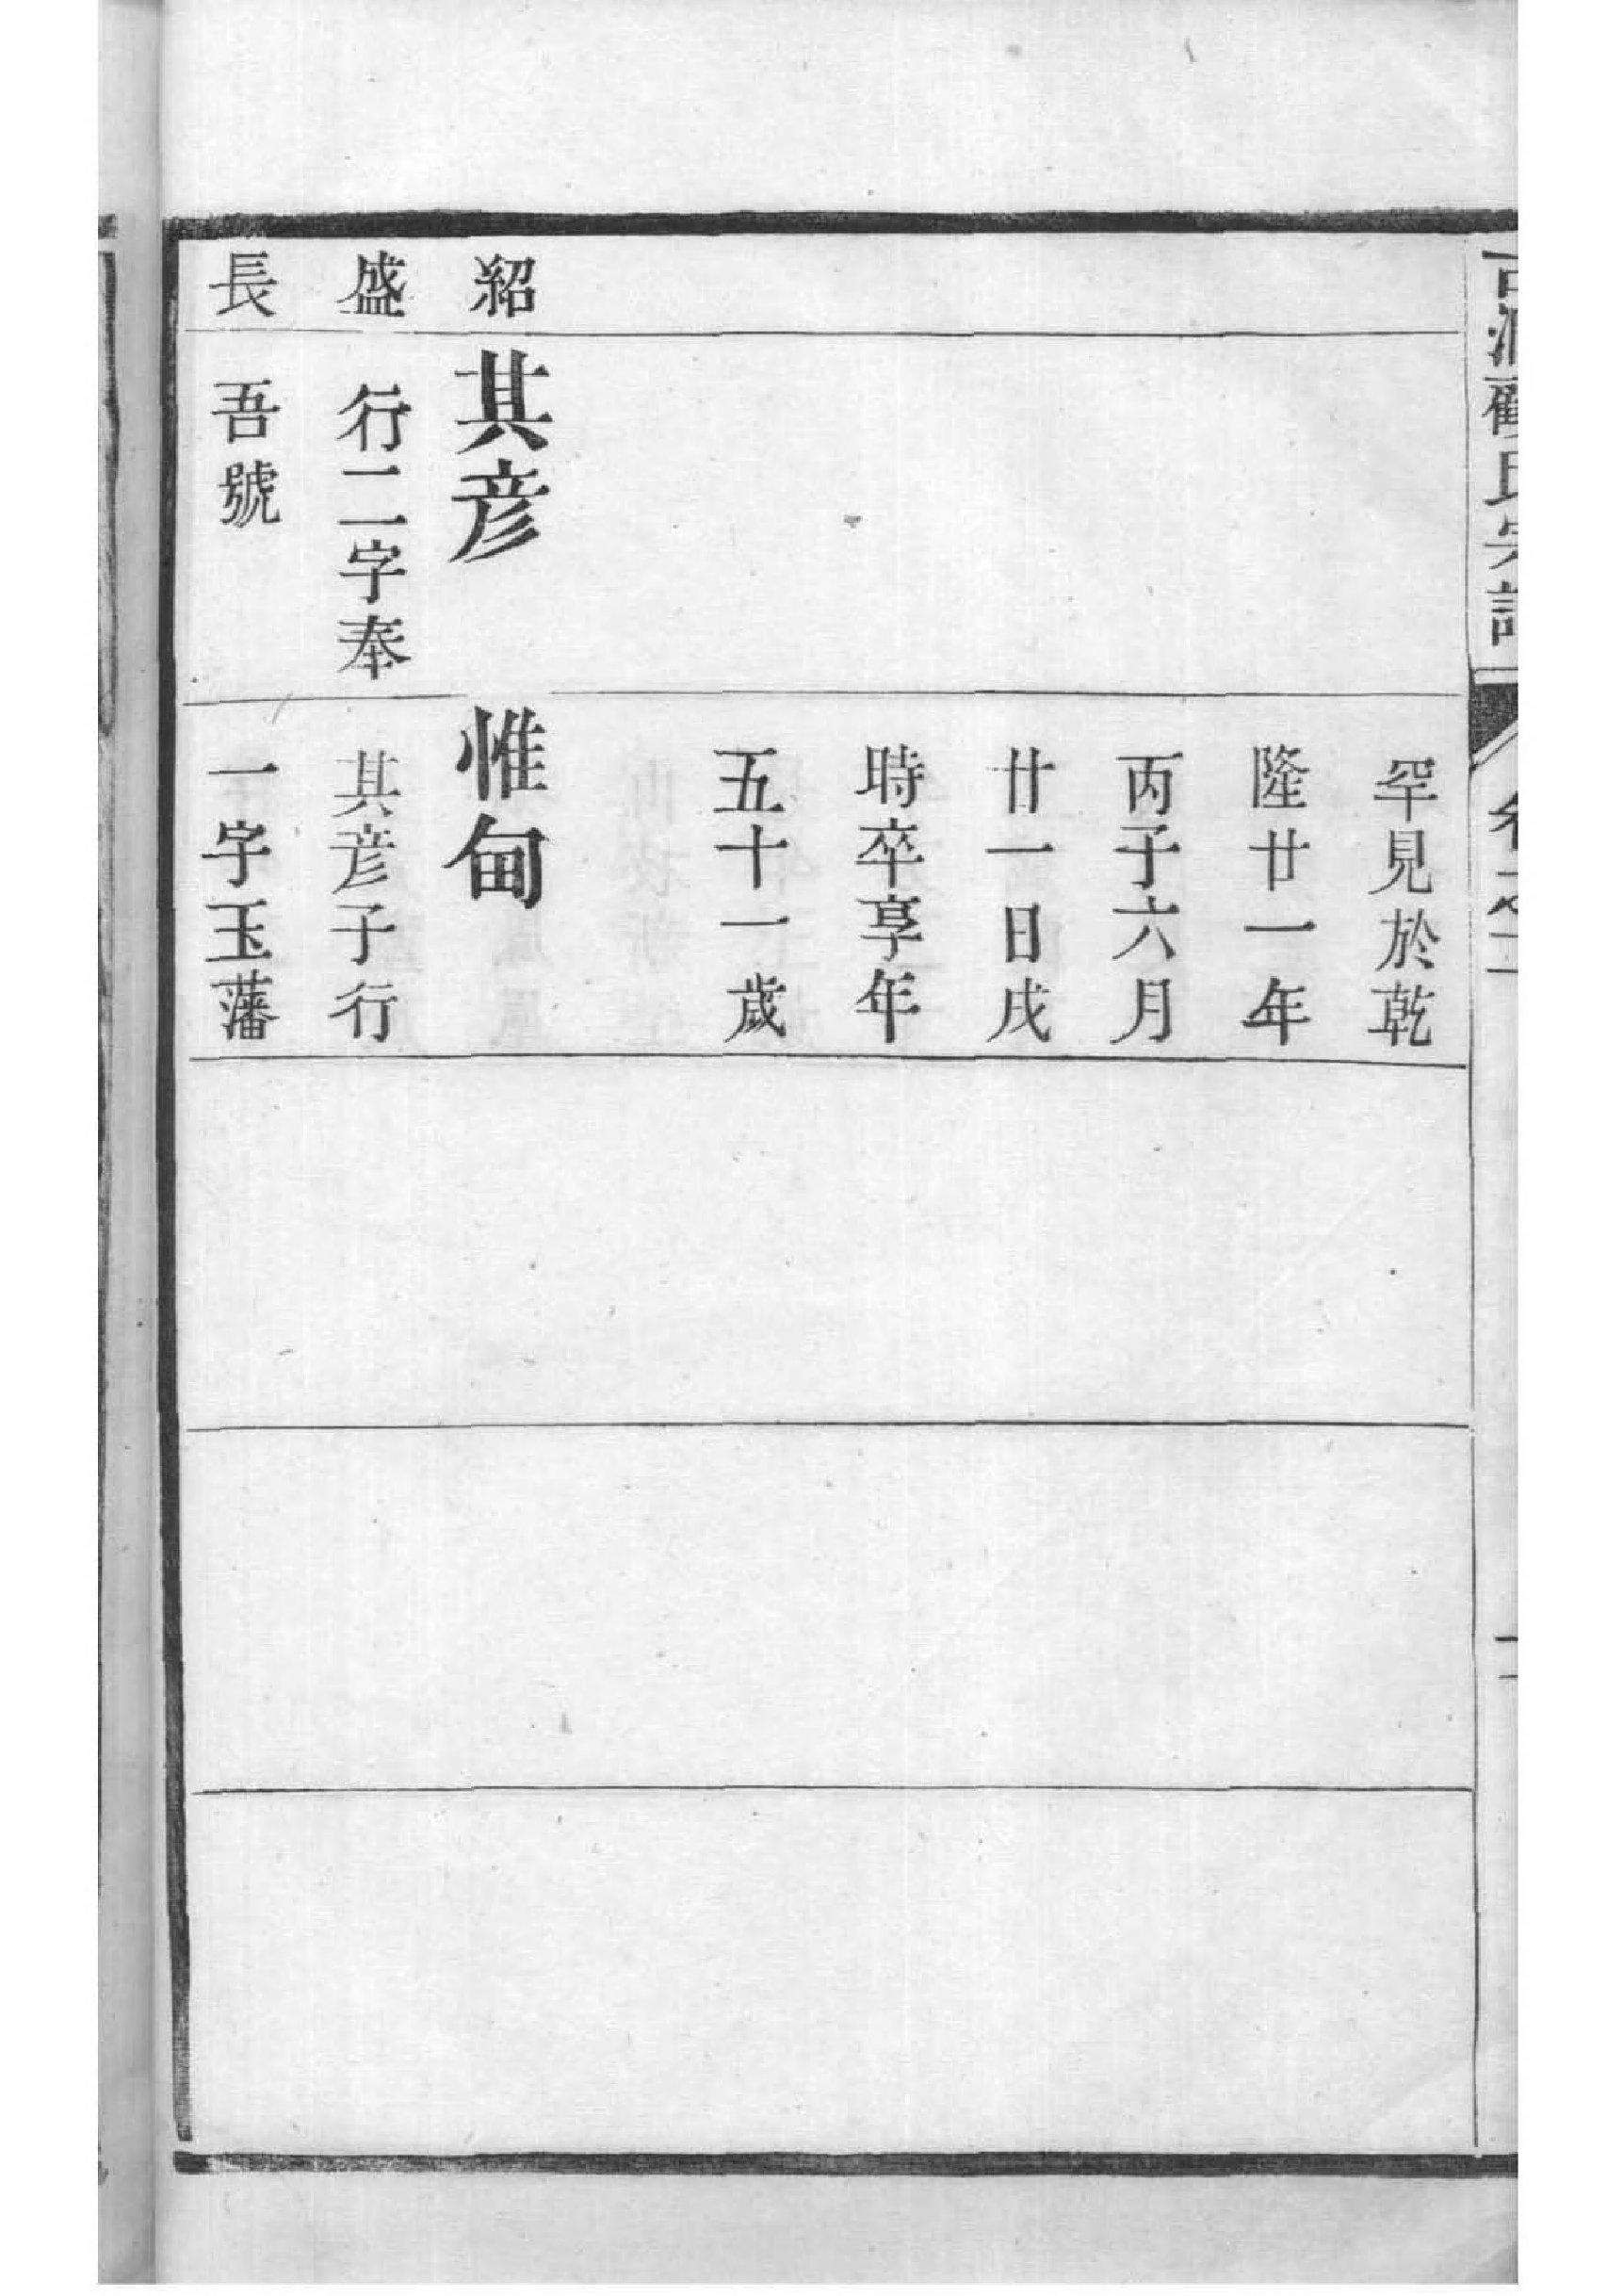 罕見於乾
隆廿一年
丙子六月
廿一日戌
時卒享年
五十一歲
紹
盛
長
其彦
行二字奉
吾號
惟甸
其彦子行
一字玉藩